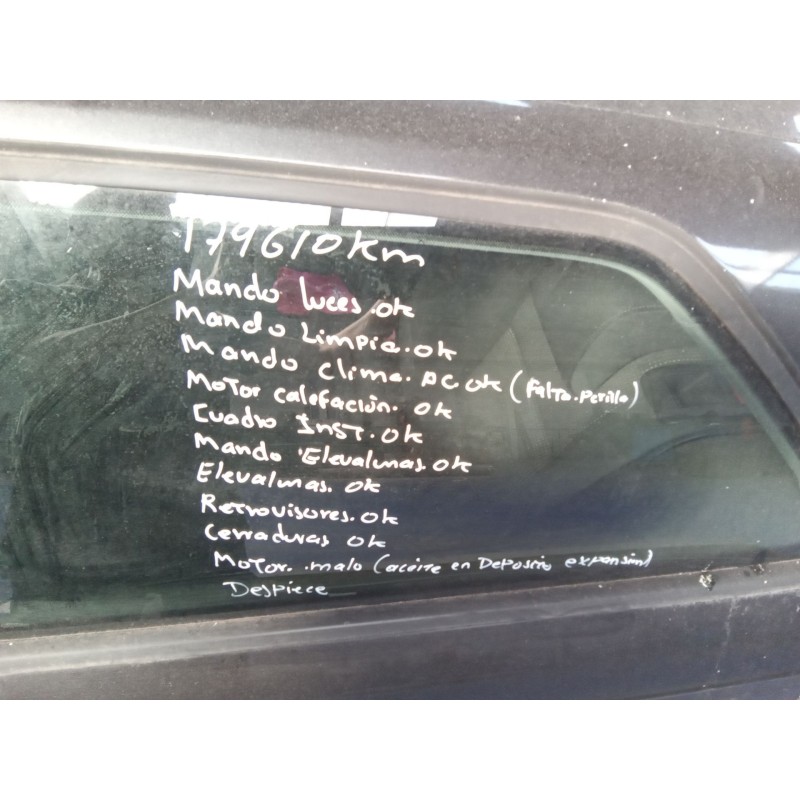 179610km
Mando luces.ok
Mando Limpia.ok
Mando clima.AC ok (Falta.Perilla)
Motor calefación. ok
Cuadro INST.ok
Mando Elevalunas.ok
Elevalunas. ok
Retrovisores.ok
Cerraduras ok
Motor.malo (aceite en Deposito expansion)
Despiece